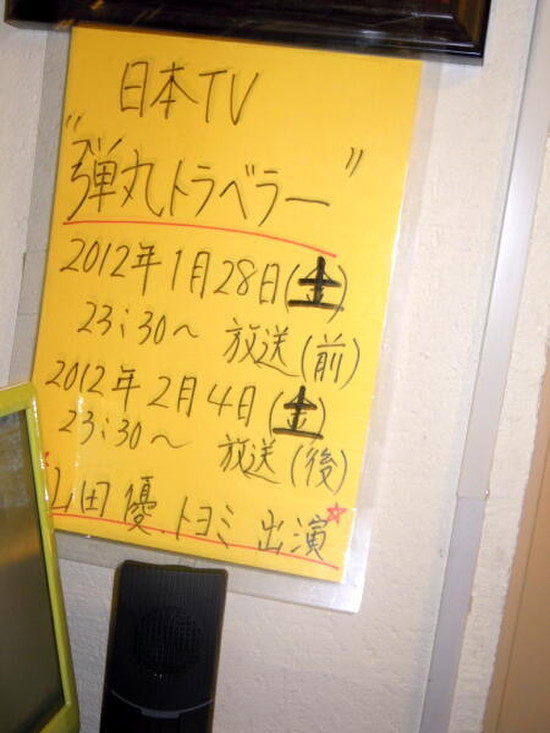 日本TV
"弾丸トラベラー"
2012年1月28日(土)
23:30〜 放送(前)
2012年2月4日(土)
23:30〜 放送(後)
山田 優.トヨミ 出演☆